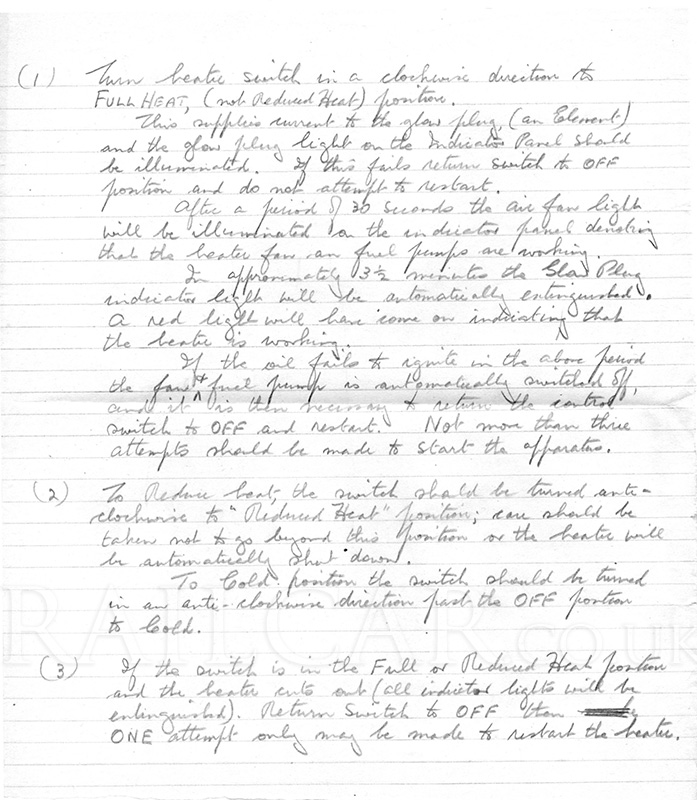 (1) Turn heater switch in a clockwise direction to
FULL HEAT, (not Reduced Heat) position.
This supplies current to the glow plug, (an Element)
and the glow plug light on the Indicator Panel should
be illuminated. If this fails return switch to OFF
position and do not attempt to restart.
After a period of 30 seconds the air fan light
will be illuminated on the indicator panel denoting
that the heater fan an fuel pumps are working.
In approximately 3½ minutes the Glow Plug
indicator light will be automatically extinguished.
A red light will have come on indicating that
the heater is working.
If the oil fails to ignite in the above period
the fan + fuel pump is automatically switched off,
and it is then necessary to return the control
switch to OFF and restart. Not more than three
attempts should be made to start the apparatus.
(2) To Reduce heat, the switch should be turned anti-
clockwise to "Reduced Heat" position; care should be
taken not to go beyond this position or the heater will
be automatically shut down.
To Cold position the switch should be turned
in an anti-clockwise direction past the OFF position
to Cold.
RAILCAR.co.uk
(3) If the switch is in the Full or Reduced Heat position
and the heater cuts out (all indictor lights will be
extinguished). Return Switch to OFF then
ONE attempt only may be made to restart the heater.